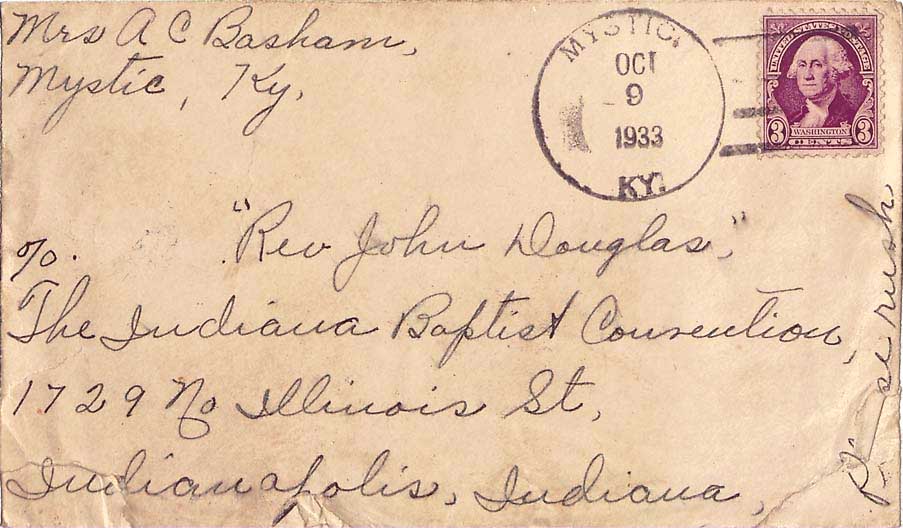 Mrs A C Basham,
Mystic, Ky.
MYSTIC,
OCT
9
1933
KY.
UNITED STATES POSTAGE
3 WASHINGTON 3
CENTS
"Rev John Douglas",
c/o.
The Indiana Baptist Convention,
1729 No Illinois St,
Indianapolis, Indiana,
rush